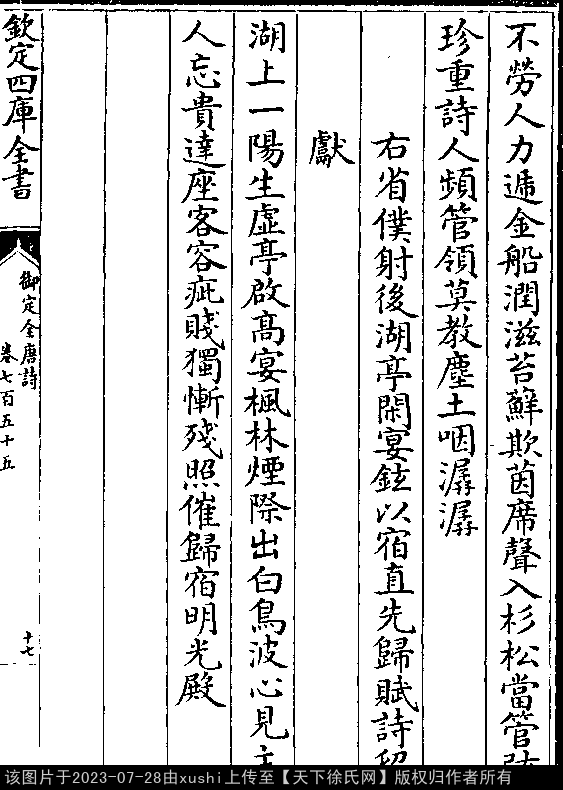 不勞人力遞金船潤滋苔蘚欺茵席聲入杉松當管
珍重詩人頻管領莫教塵土咽潺潺
右省僕射後湖亭閑宴鉉以宿直先歸賦詩
獻
湖上一陽生虛亭啟高宴楓林煙際出白鳥波心見
人忘貴達座客容疵賤獨慚殘照催歸宿明光殿
欽定四庫全書
御定全唐詩
卷七百五十五
十七
该图片于2023-07-28由xushi上传至【天下徐氏网】版权归作者所有